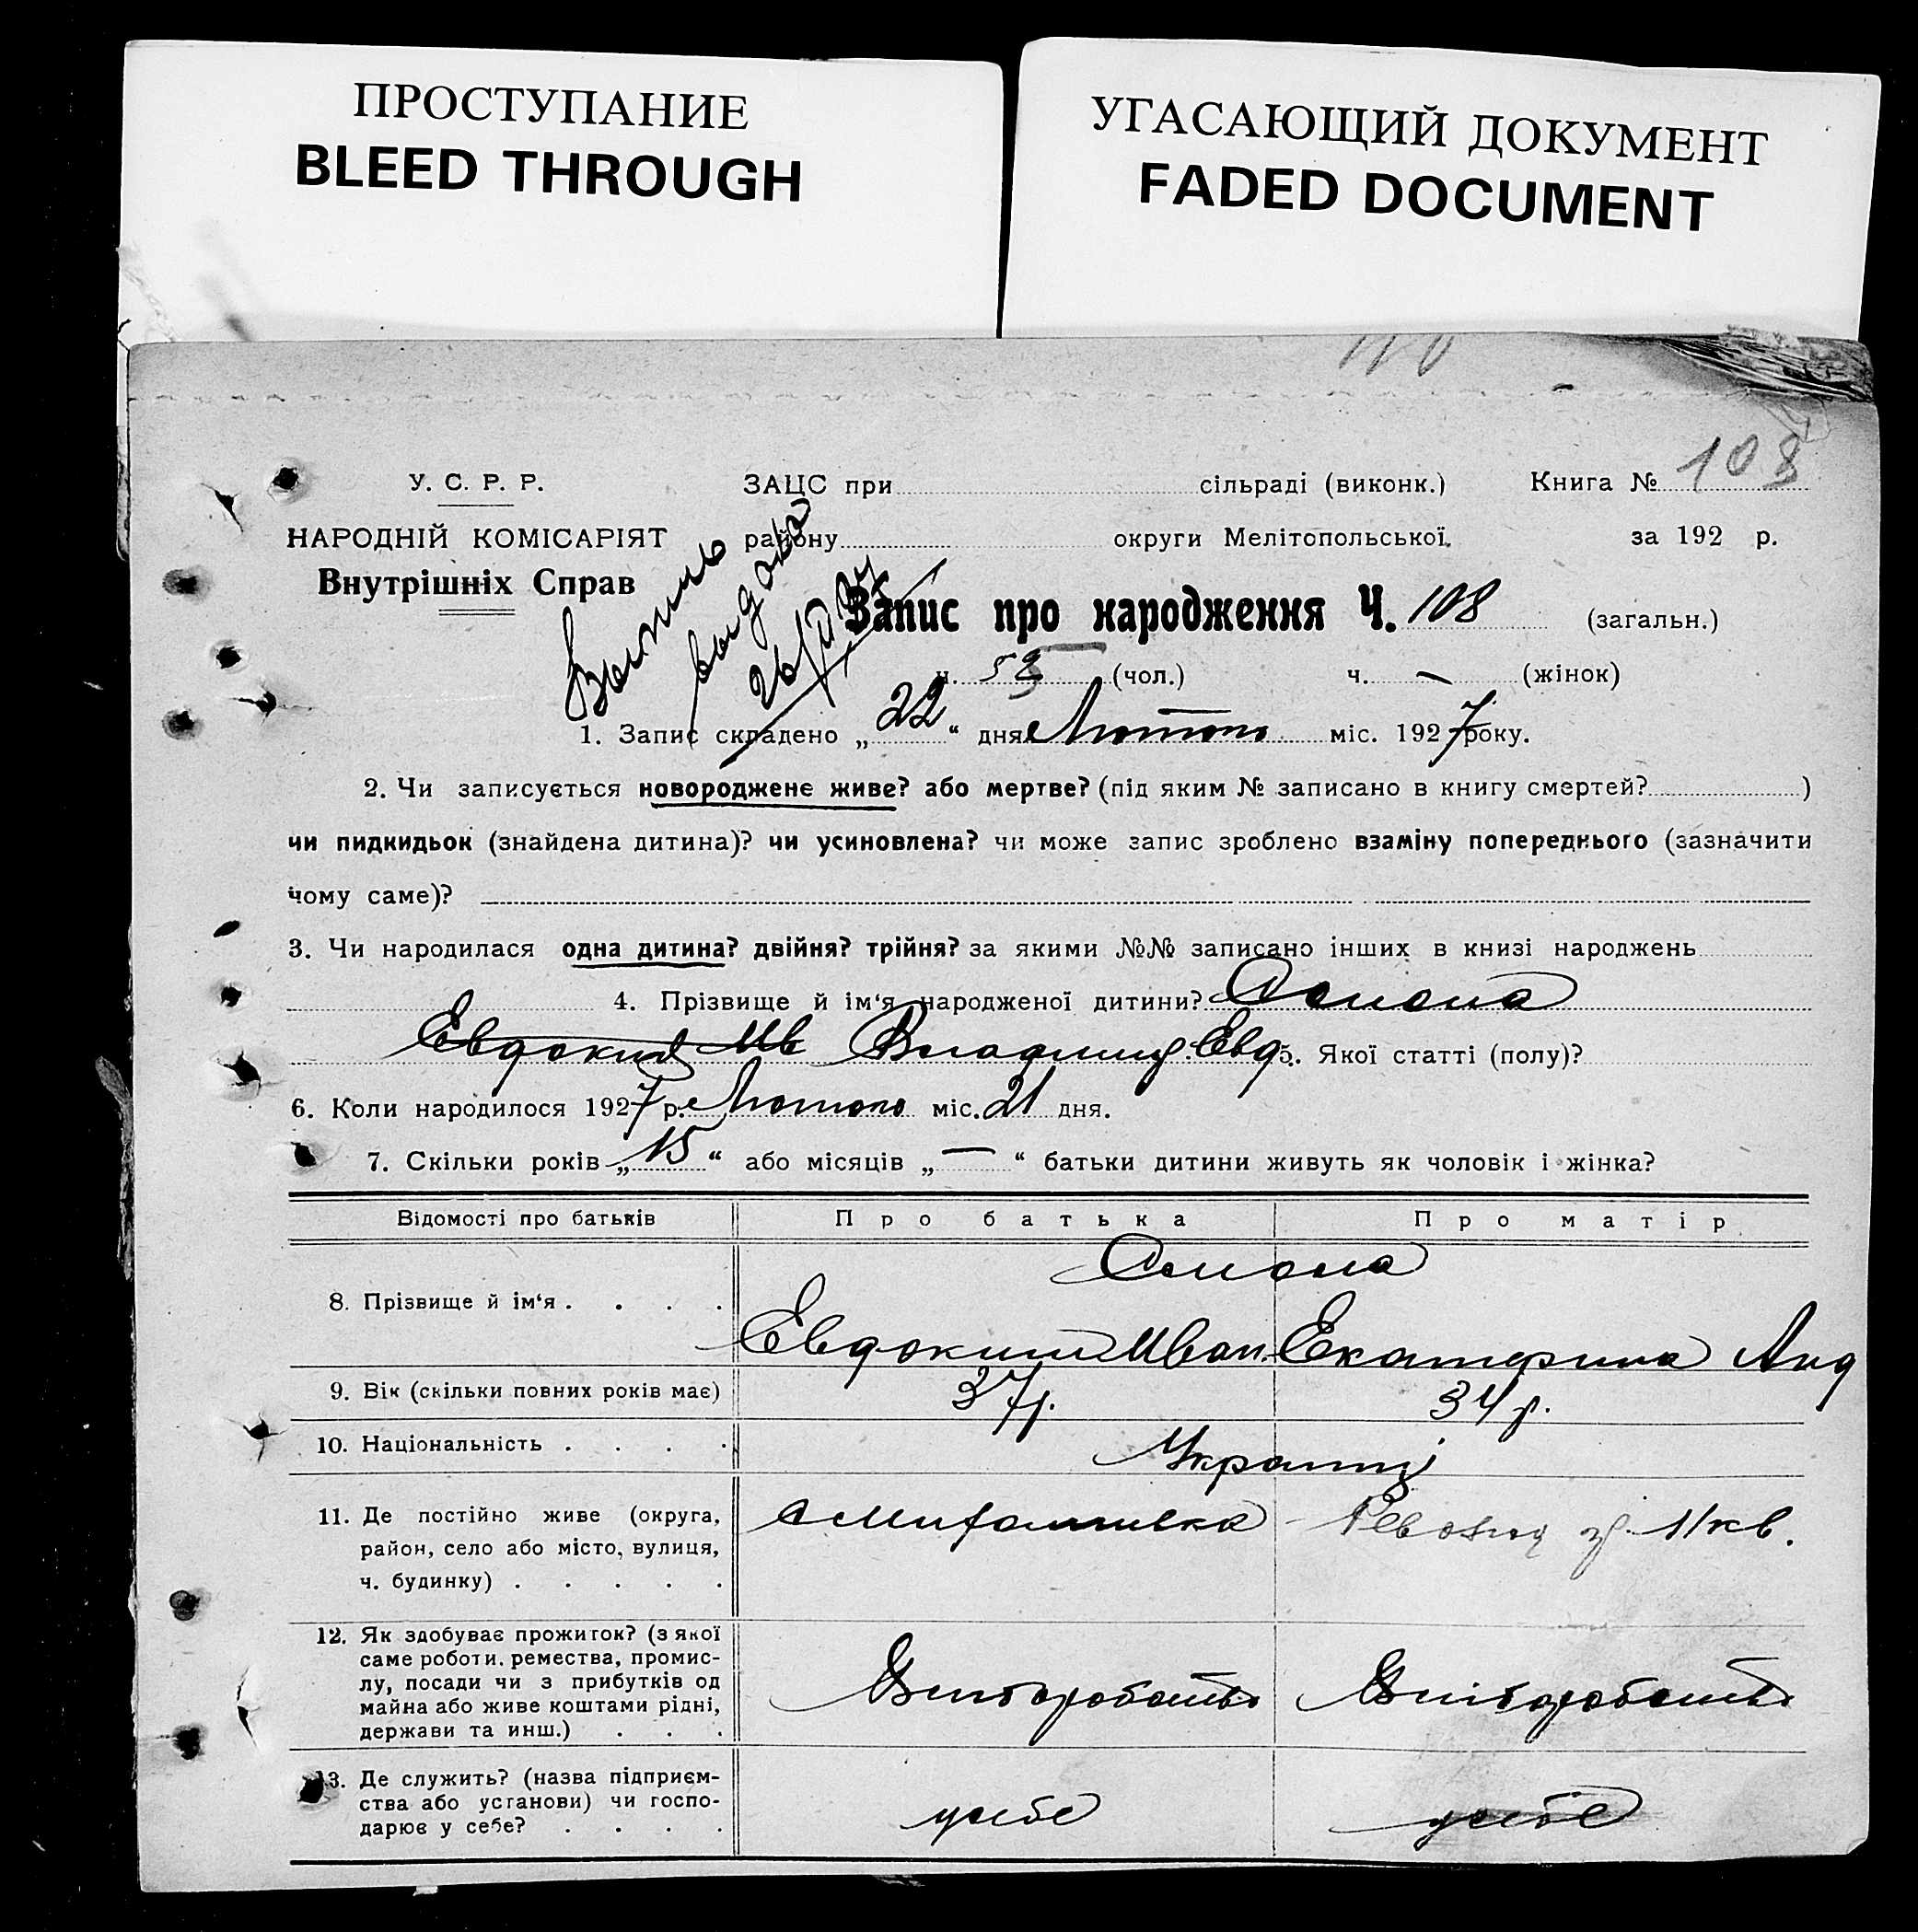 ПРОСТУПАНИЕ
BLEED THROUGH
УГАСАЮЩИЙ ДОКУМЕНТ
FADED DOCUMENT
108
У. С. Р. Р.
НАРОДНІЙ КОМІСАРІЯТ
Внутрішніх Справ
ЗАЦС при сільраді (виконк.) Книга №
району округи Мелітопольської. за 192 р.
выдана
Запис про народження Ч. 108 (загальн.)
ч. (чол.) ч. — (жінок)
1. Запис складено „ 22 “ дня Лютого міс. 1927 року.
2. Чи записується новороджене живе? або мертве? (під яким № записано в книгу смертей? )
чи пидкидьок (знайдена дитина)? чи усиновлена? чи може запис зроблено взаміну попереднього (зазначити
чому саме)?
3. Чи народилася одна дитина? двійня? трійня? за якими №№ записано інших в книзі народжень
4. Прізвище й ім‘я народженої дитини?
Евдоким Ив Владимир Евд. 5. Якої статті (полу)?
6. Коли народилося 1927 р. Лютого міс. 21 дня.
7. Скільки років „ 15 “ або місяців „ — “ батьки дитини живуть як чоловік і жінка?
Відомості про батьків Про батька Про матір
8. Прізвище й ім‘я . . . .
Евдоким Иван. Екатерина Анд
9. Вік (скільки повних років має) 37 р. 34 р.
10. Національність . . . . Українці
11. Де постійно живе (округа,
район, село або місто, вулиця,
ч. будинку) . . . . .
11 кв.
12. Як здобуває прожиток? (з якої
саме роботи, ремества, промис-
лу, посади чи з прибутків од
майна або живе коштами рідні,
держави та инш.) . . .
Хліборобство Хліборобство
13. Де служить? (назва підприєм-
ства або установи) чи госпо-
дарює у себе? . . . .
у себе у себе